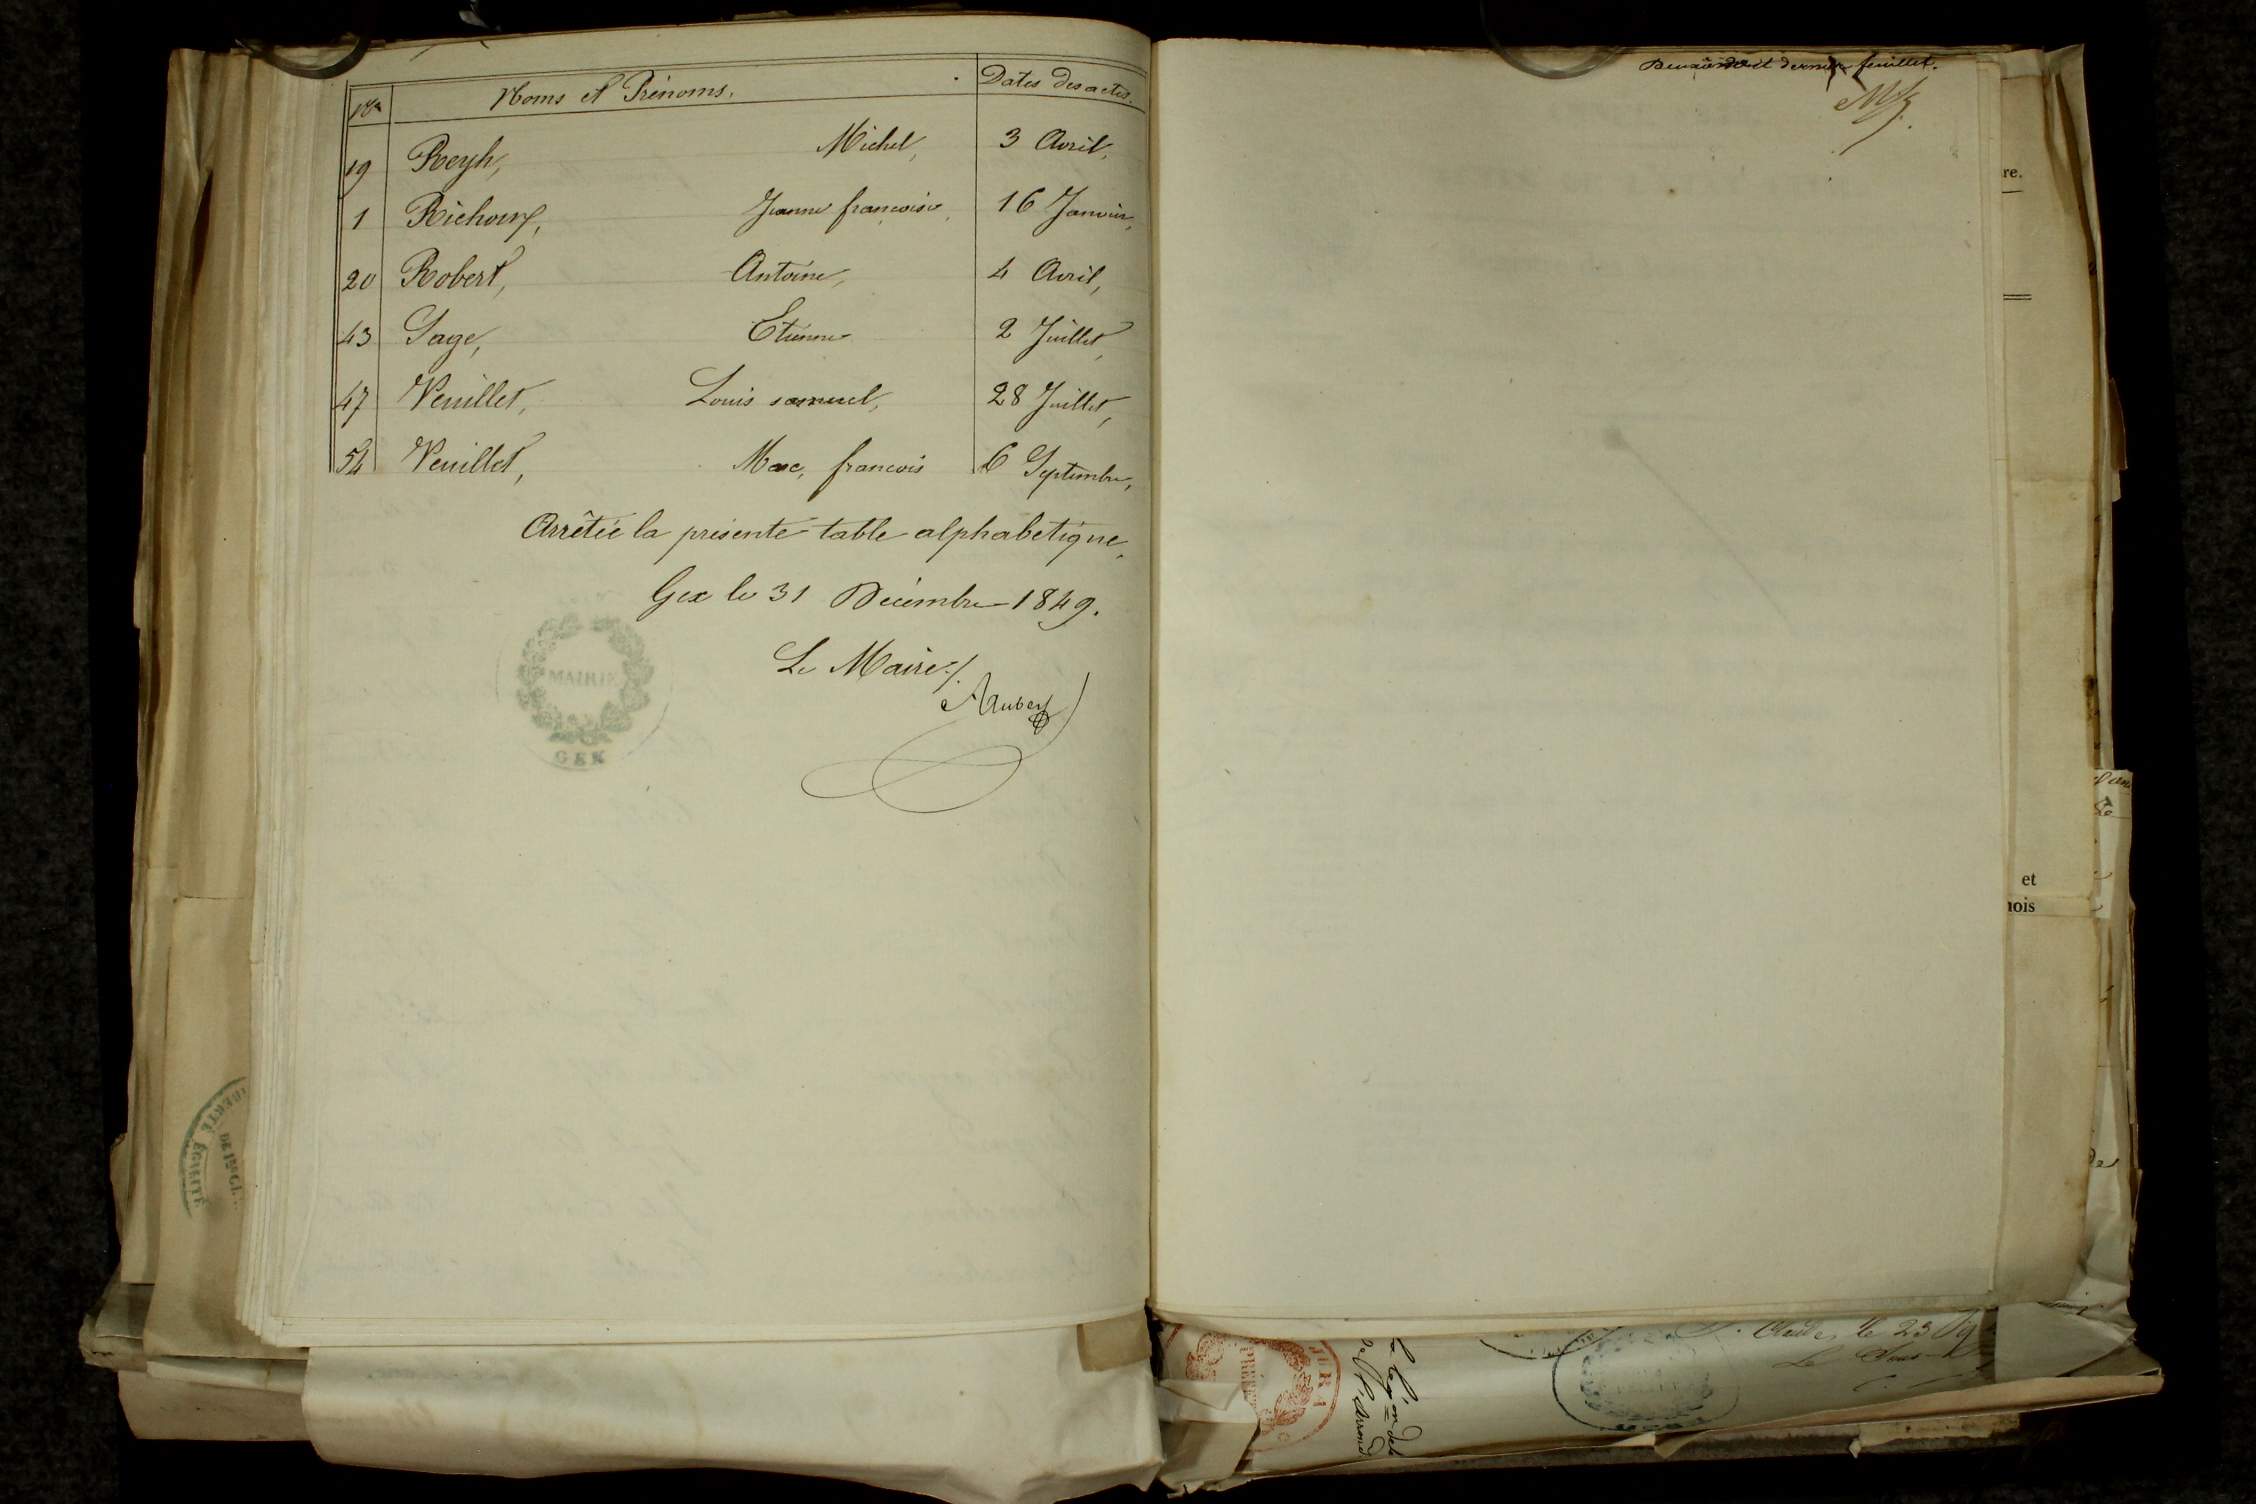 Nos Noms et Prénoms. Dates des actes.
19 Reyh, Michel, 3 Avril,
1 Jeanne francoise, 16 Janvier,
20 Robert, Antoine, 4 Avril,
43 Sage, Etienne 2 Juillet,
47 Veuillet, Louis samuel, 28 Juillet,
54 Veuillet, Marc, francois 6 Septembre,
Arrêtée la présente table alphabetique,
Gex le 31 Décembre 1849.
Le Maire
MAIRIE
GEX
Deuxième et dernier feuillet.
re.
et
nois
LIBERTÉ ÉGALITÉ
JURA